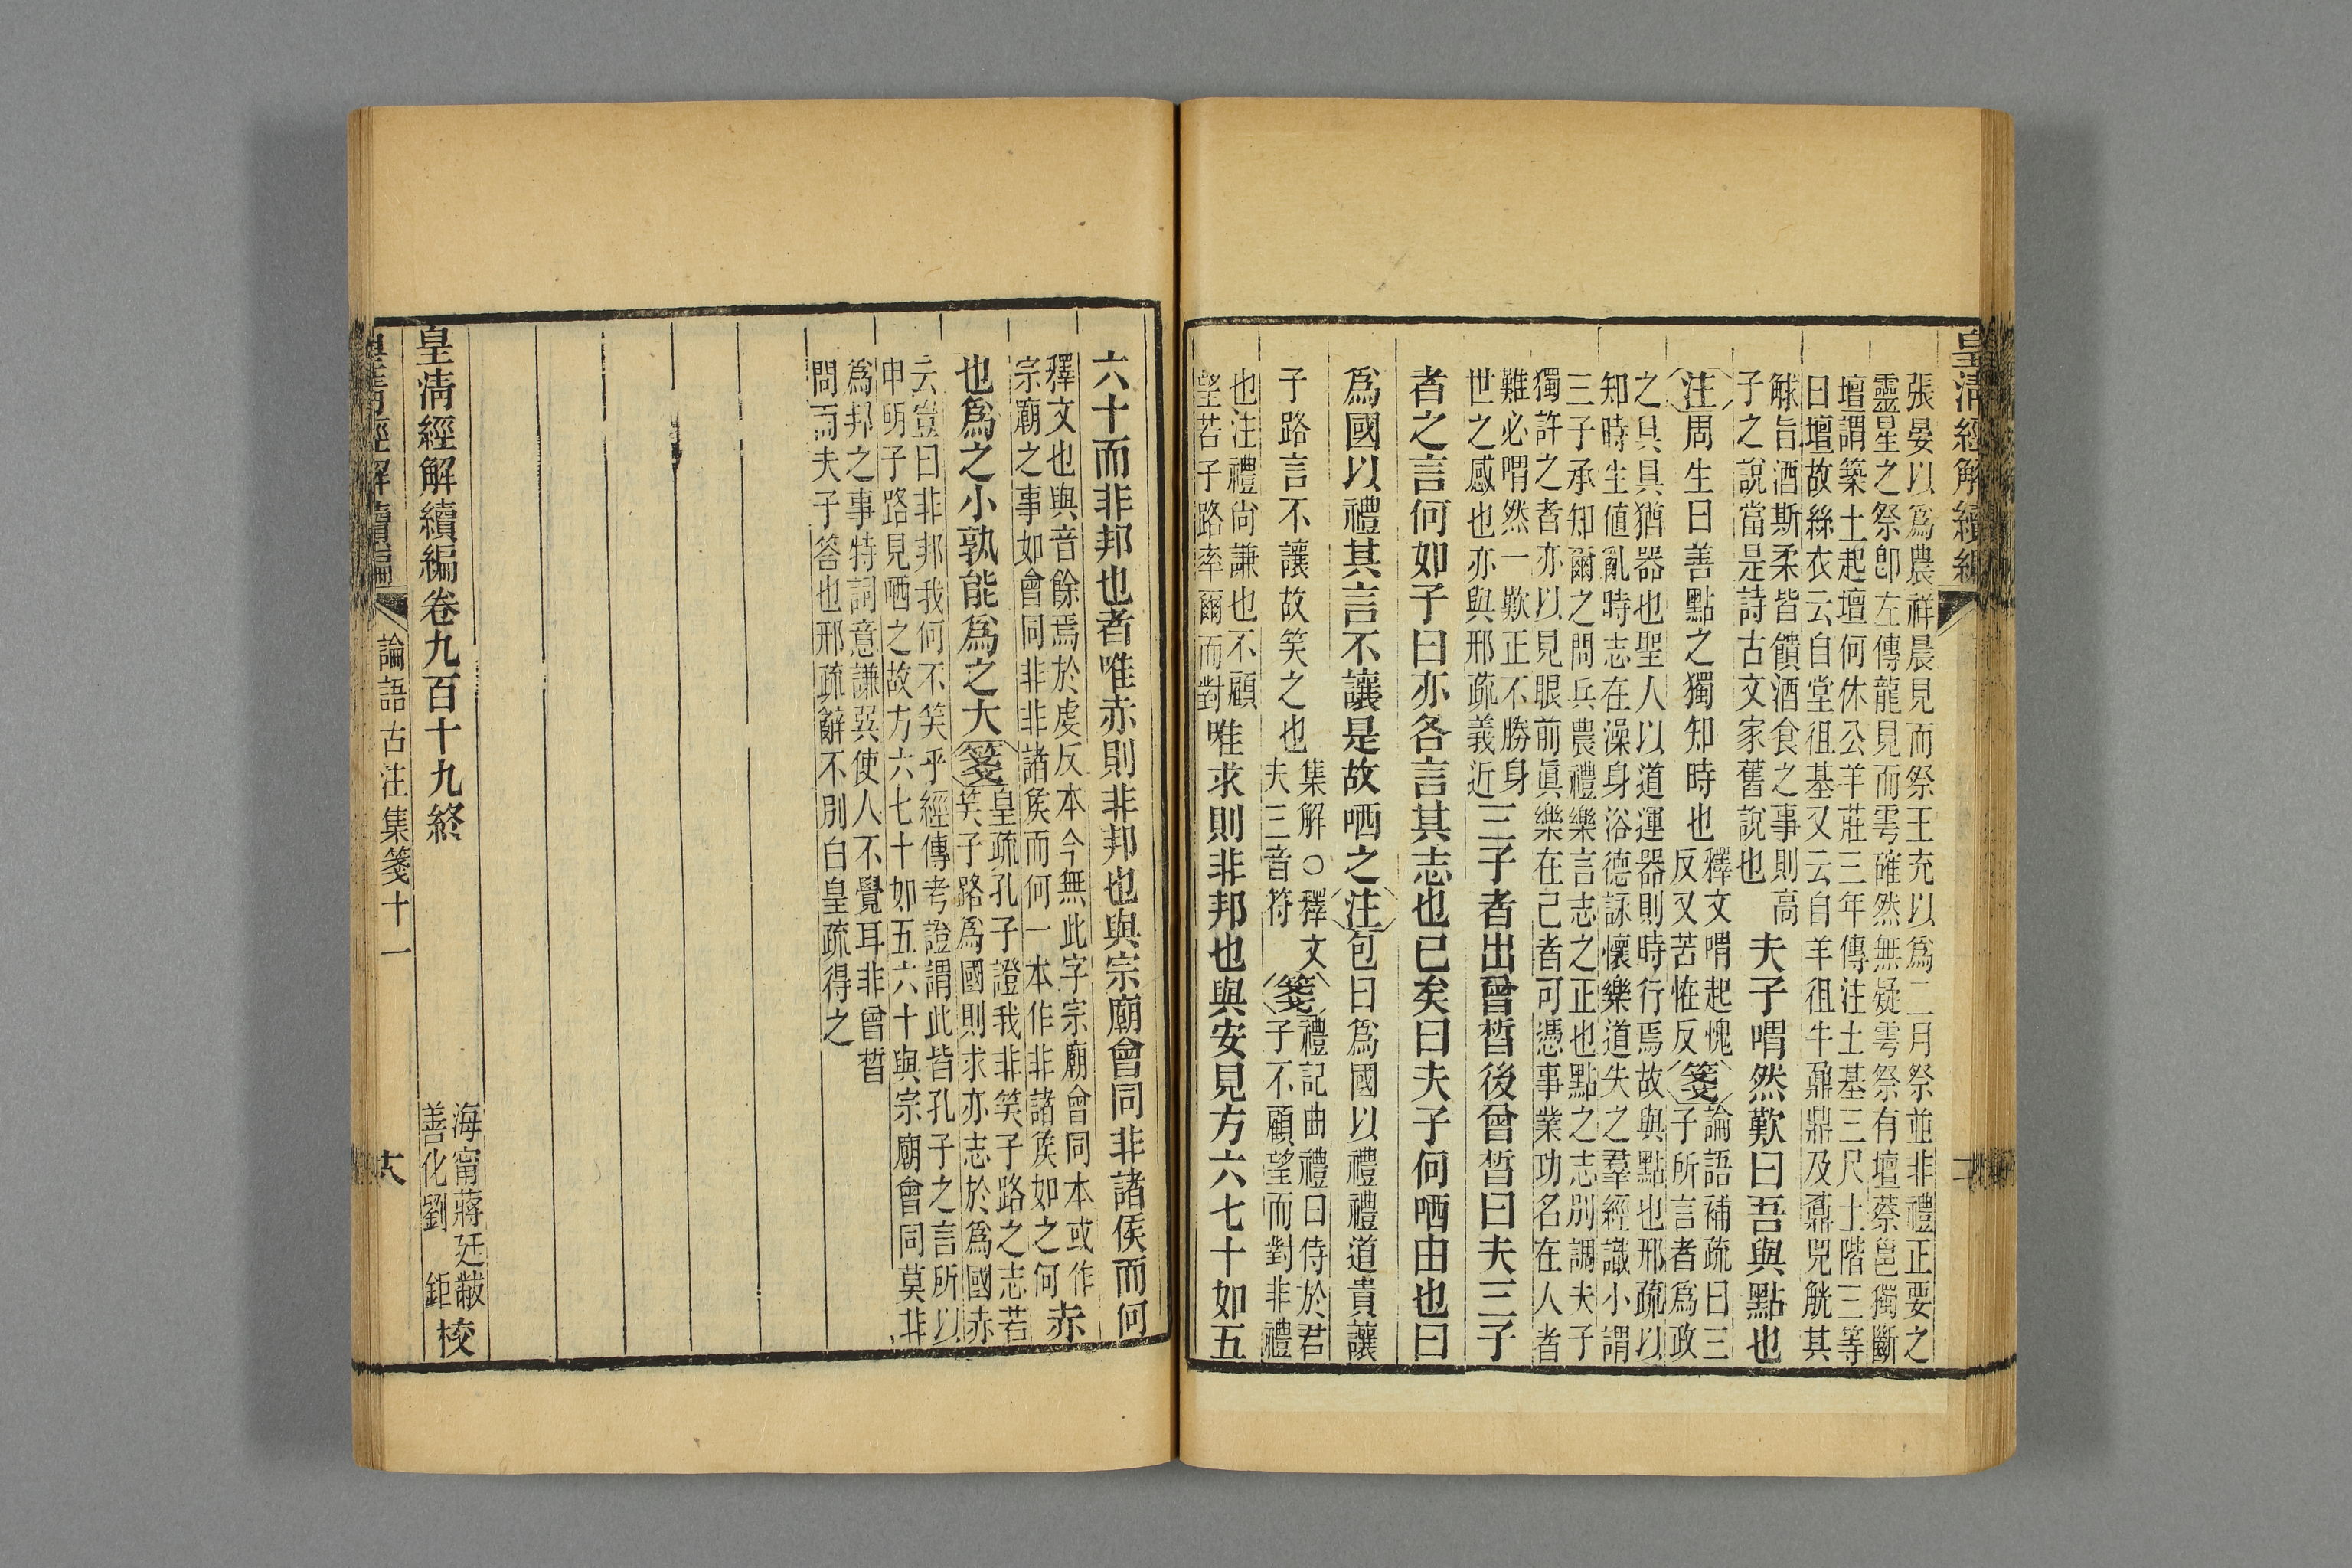 皇清經解續編
張晏以爲農祥晨見而祭王充以爲二月祭並非禮正要之
靈星之祭卽左傳龍見而雩確然無疑雩祭有壇蔡邕獨斷
壇謂築土起壇何休公羊莊三年傳注土基三尺土階三等
曰壇故絲衣云自堂徂基又云自羊徂牛鼐鼎及鼒兕觥其
觩旨酒斯柔皆饋酒食之事則高
子之說當是詩古文家舊說也
夫子喟然歎曰吾與點也
注周生曰善點之獨知時也
釋文喟起愧
反又苦恠反
箋
論語補疏曰三
子所言者爲政
之具具猶器也聖人以道運器則時行焉故與點也邢疏以
知時生値亂時志在澡身浴德詠懷樂道失之羣經識小謂
三子承知爾之問兵農禮樂言志之正也點之志別調夫子
獨許之者亦以見眼前眞樂在己者可憑事業功名在人者
難必喟然一歎正不勝身
世之感也亦與邢疏義近
三子者出曾晳後曾晳曰夫三子
者之言何如子曰亦各言其志也已矣曰夫子何哂由也曰
爲國以禮其言不讓是故哂之注包曰爲國以禮禮道貴讓
子路言不讓故笑之也
集解○釋文
夫三音符
箋
禮記曲禮曰侍於君
子不顧望而對非禮
也注禮尙謙也不顧
望若子路率爾而對
唯求則非邦也與安見方六七十如五
六十而非邦也者唯赤則非邦也與宗廟會同非諸侯而何
釋文也與音餘焉於虔反本今無此字宗廟會同本或作
宗廟之事如會同非非諸侯而何一本作非諸侯如之何
赤
也爲之小孰能爲之大箋
皇疏孔子證我非笑子路之志若
笑子路爲國則求亦志於爲國赤
云豈曰非邦我何不笑乎經傳考證謂此皆孔子之言所以
申明子路見哂之故方六七十如五六十與宗廟會同莫非
爲邦之事特詞意謙巽使人不覺耳非曾晳
問而夫子答也邢疏辭不別白皇疏得之
皇清經解續編卷九百十九終
海甯蔣廷黻
善化劉鉅
校
皇清經解續編
論語古注集箋十一
六